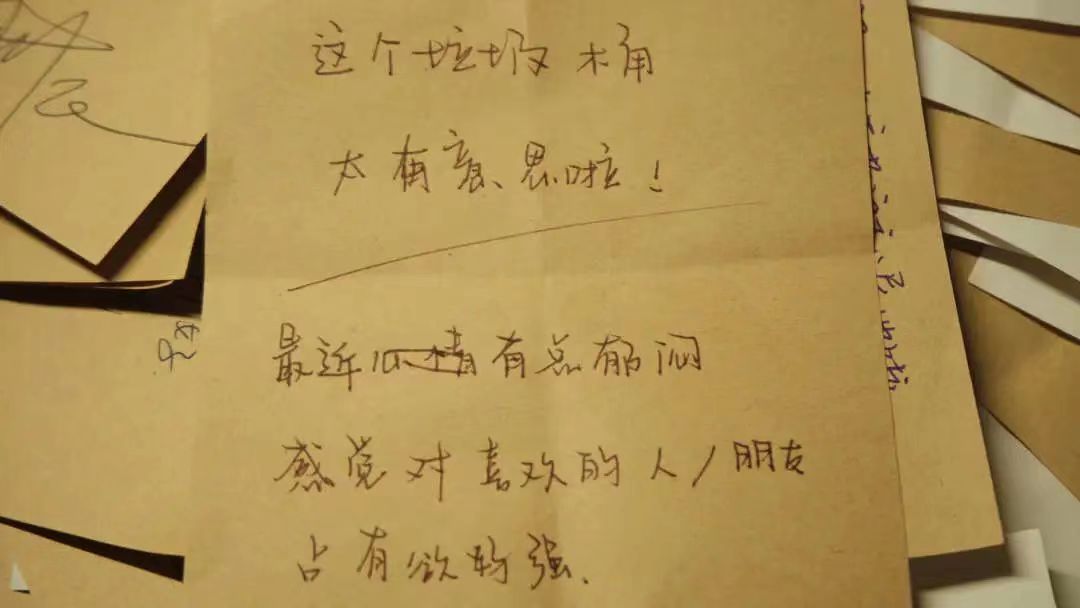 这个垃圾桶
太有意思啦！
最近心情有点郁闷
感觉对喜欢的人/朋友
占有欲强.